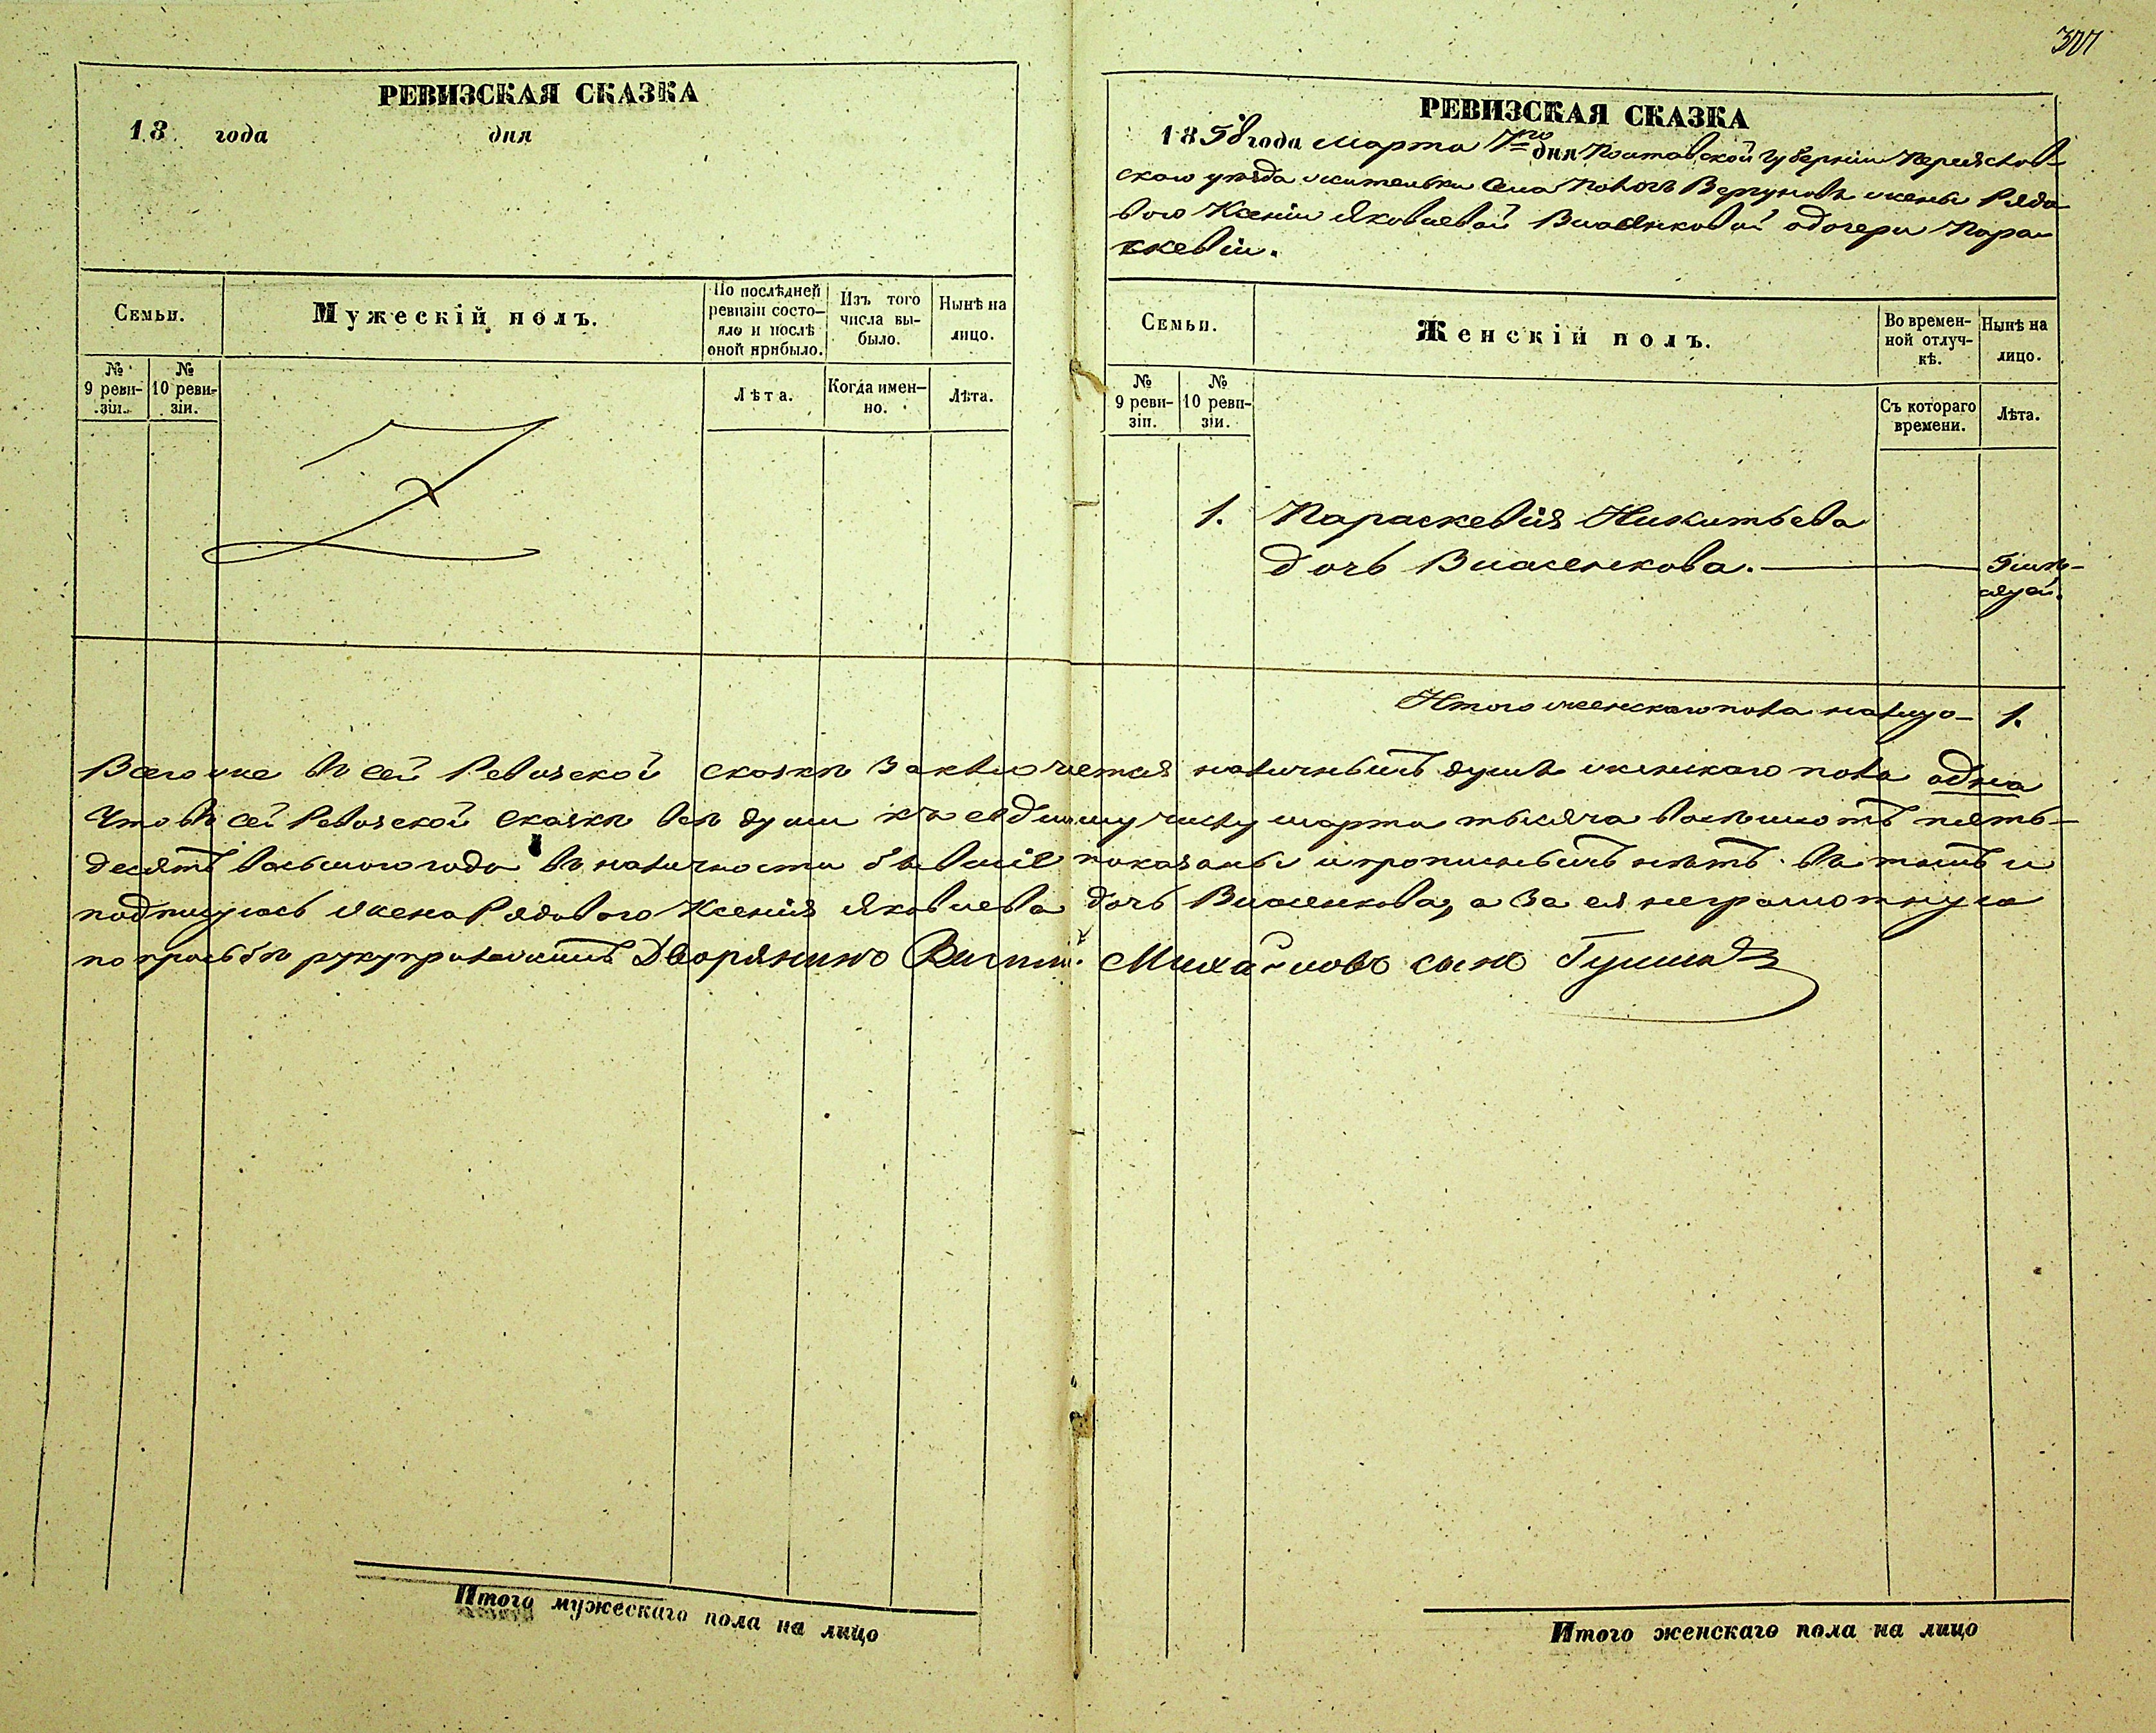 307
РЕВИЗСКАЯ СКАЗКА
18 года дня
Семьи.
Мужескій полъ.
По послѣдней ревизіи состо-
яло и послѣ оной прибыло.
Изъ того числа вы-
было.
Нынѣ на лицо.
№ 9 реви-
зіи.
№ 10 реви-
зіи.
Лѣта.
Когда имен-
но.
Лѣта.
РЕВИЗСКАЯ СКАЗКА
1858 года Марта 7го дня Полтавской Губерніи Переяслав-
скаго уѣзда жительки села Пологъ Вергуновъ жены Рядо
вого Ксеніи Яковлевой Власенковой о дочери Пара-
скевіи.
Семьи.
Женскій полъ.
Во времен-
ной отлуч-
кѣ.
Нынѣ на лицо.
№ 9 реви-
зіи.
№ 10 реви-
зіи.
Съ котораго времени.
Лѣта.
1. Параскевія Никитьева
дочь Власенкова.
Итого женскаго пола налицо 1.
Всего же въ сей Ревизской сказкѣ заключается наличныхъ душъ женскаго пола одна
Что въ сей Ревизской сказкѣ всѣ души къ седьмому числу марта тысяча восемьсотъ пять-
десятъ восьмого года въ наличности бывшіе показаны и прописныхъ нѣтъ въ томъ и
подписуюсь жена Рядового Ксенія Яковлева дочь Власенкова, а за ея неграмотную
по прозьбѣ руку приложилъ Дворянинъ Михайловъ сынъ
Итого мужескаго пола на лицо
Итого женскаго пола на лицо